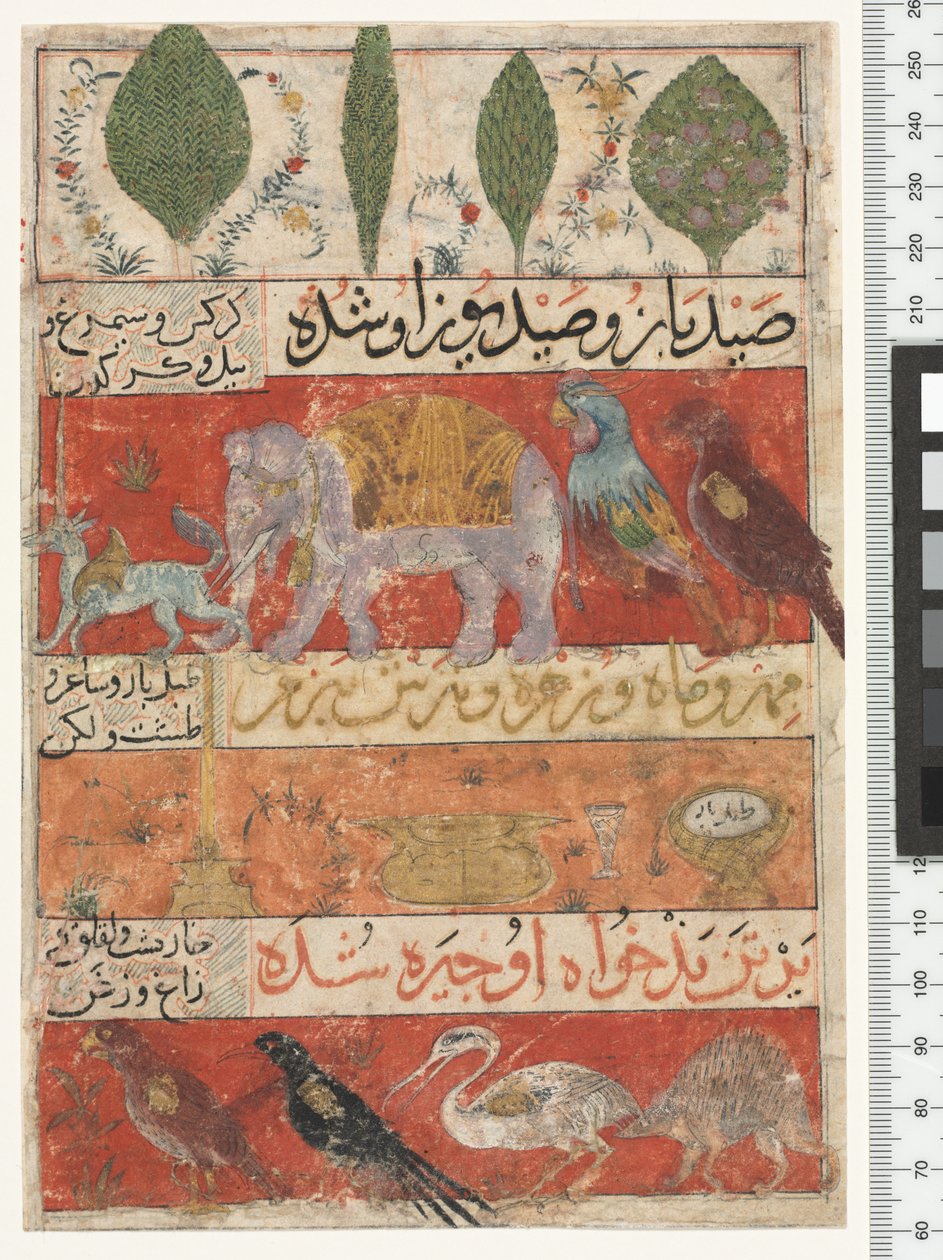 صَیْد باز و صَیْد یوز او شُده
کرکس و سیمرغ و
پیل و کرکدن
مهر و ماه و زهره و تیرش ببزم
طبل باز و ساغر و
طشت و لکن
طبل باز
بَر تَن بَدخواه اُو جیره شُده
خارپشت و لقلق و
زاغ و زغَن
250
240
230
220
210
110
100
90
80
70
60